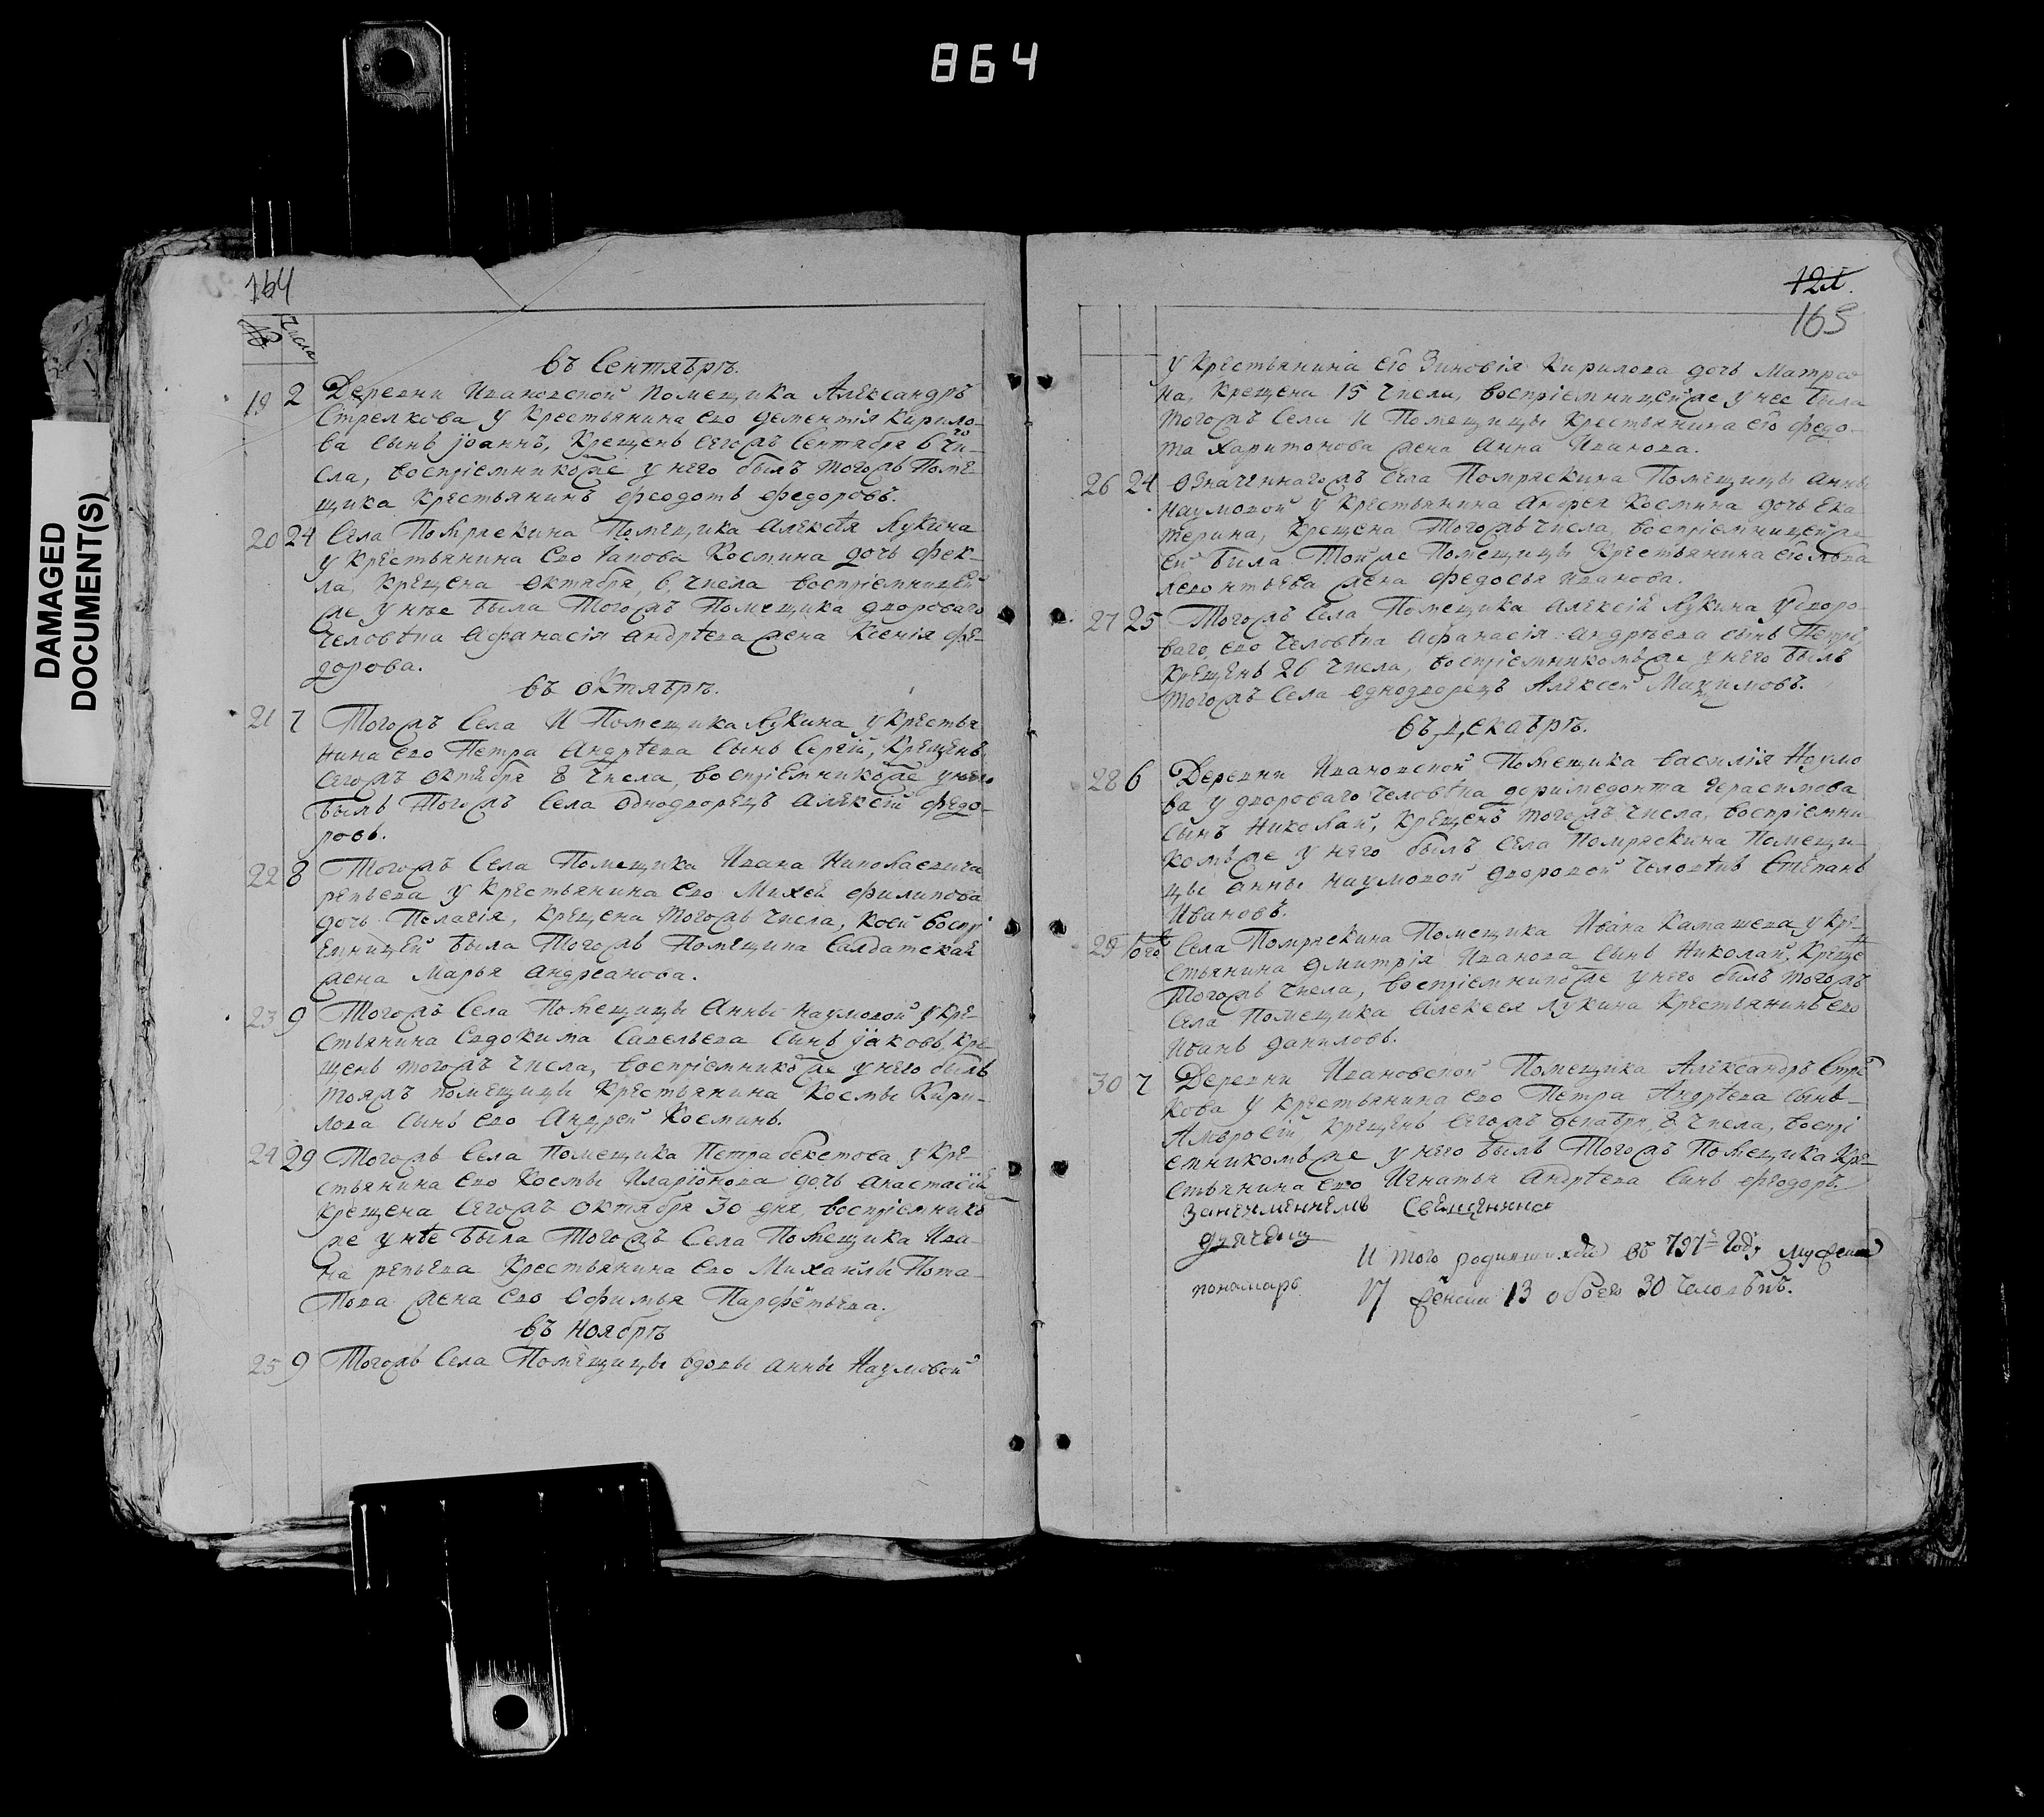 864
DAMAGED
DOCUMENT(S)
164
№ Числа
Въ Сентябрѣ.
19 2 Деревни Ивановской Помещика Александръ
Стрелкова у Крестьянина ево Дементія Кирило-
ва сынъ Іоаннъ, Крещенъ сегожъ Сентября 6 го чи-
сла, воспріемникомже у него былъ тогожъ Поме-
щика Крестьянинъ Феодотъ Федоровъ.
20 24 Села Помряскина Помещика Алексѣя Лукина
у Крестьянина ево Космина дочь Фек-
ла, Крещена Октября, 6, числа воспріемницей
же у нѣе была Тогожъ Помещика двороваго
человѣка Афанасія Андрѣева жена Ксенія Фе-
дорова.
Въ Октябрѣ.
21 7 Тогожъ Села И Помещика Лукина у Крестья
нина ево Петра Андрѣева сынъ Сергій, Крещенъ
сегожъ Октября 8 числа, воспріемникомже у него
былъ Тогожъ Села Однодворецъ Алексѣй Федо-
ровъ.
22 8 Тогожъ Села Помещика Ивана Николаевича
репьева у Крестьянина ево Михея Филипова
дочь Пелагія, Крещена тогожъ числа, коей воспрі
емницей была Тогожъ Помещика Салдатская
жена Марья Андреанова.
23 9 Тогожъ Села Помещицы Анны Наумовой у Кре-
стьянина Евдокима Савельева сынъ Іаковъ, Кре-
щенъ тогожъ числа, воспріемникомже у него былъ
тояжъ помещицы Крестьянина Космы Кири-
лова сынъ ево Андрей Косминъ.
24 29 Тогожъ Села Помещика Петра бекетова у Кре-
стьянина ево Космы Иларіонова дочь Анастасія
Крещена сегожъ Октября 30 дня, воспріемнице
же у нѣе была Тогожъ Села Помещика Ива-
на репьева Крестьянина ево Михайлы Пота-
пова жена ево Офимья Парфетьева.
Въ Ноябрѣ
25 9 Тогожъ Села Помещицы вдовы Анны Наумовой
121.
165
у Крестьянина его Зиновія Кирилова дочь Матрео
на, Крещена 15 числа, воспріемницейже у нее была
тогожъ Села И Помещицы Крестьянина его Федо-
та Харитонова жена Анна Иванова.
26 24 Означеннагожъ села Помряскина Помещицы Анны
наумовой у Крестьянина Андрея Космина дочь Ека
терина, Крещена Тогожъ числа, воспріемницейже
ей была Тойже Помещицы Крестьянина его
леонтьева жена Федосья Иванова.
27 25 Тогожъ Села Помещика Алексѣй Лукина у дворо-
ваго ево человѣка Афанасія Андрѣева сынъ Петръ,
Крещенъ 26 числа, воспріемникомъже у него былъ
тогожъ Села однодворецъ Алексей
Въ Декабрѣ.
28 6 Деревни Ивановской Помещика Василія Наумо
ва у двороваго человѣка Герасимова
сынъ Николай, Крещенъ тогожъ числа, воспріемни
комъже у него былъ Села Помряскина Помещи-
цы Анны Наумовой дворовой человѣкъ Степанъ
Ивановъ.
29 Села Помряскина Помещика Ивана Камашева у Кре-
стьянина Дмитрія Иванова сынъ Николай, Креще
Тогожъ числа, воспріемникомже у него былъ тогожъ
Села Помещика Алексея Лукина Крестьянинъ ево
Иванъ Даниловъ.
30 7 Деревни Ивановской Помещика Александръ Стрѣ
кова у Крестьянина ево Петра Андрѣева сынъ
Амвросій Крещенъ сегожъ декабря, 8, числа, воспрі
емникомъже у него былъ Тогожъ Помещика Кре-
стьянина ево Игнатья Андрѣева сынъ Феодоръ.
Занеимениемъ Священника
дьячокъ
И того родившихся во 797 году мужеска
пономарь 17 женска 13 обоего 30 человѣкъ.